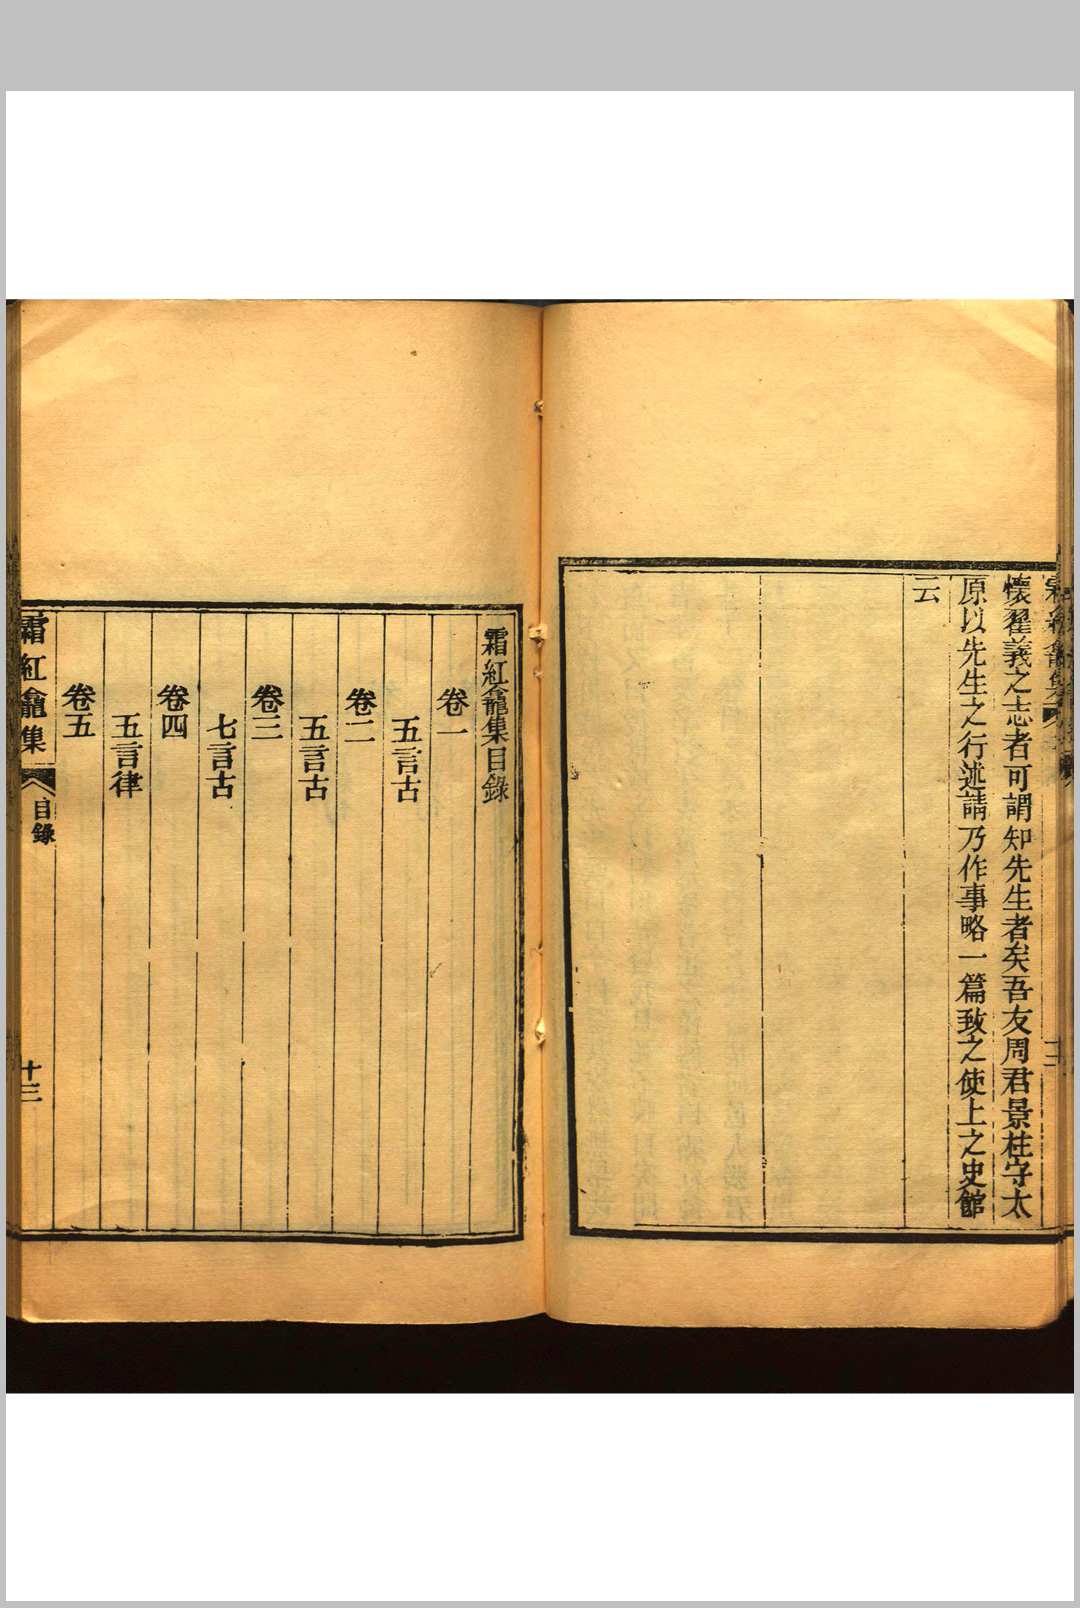 懷翟義之志者可謂知先生者矣吾友周君景柱守太
原以先生之行述請乃作事略一篇致之使上之史館
云
霜紅龕集目錄
卷一
五言古
卷二
五言古
卷三
七言古
卷四
五言律
卷五
霜紅龕集
目錄
十三